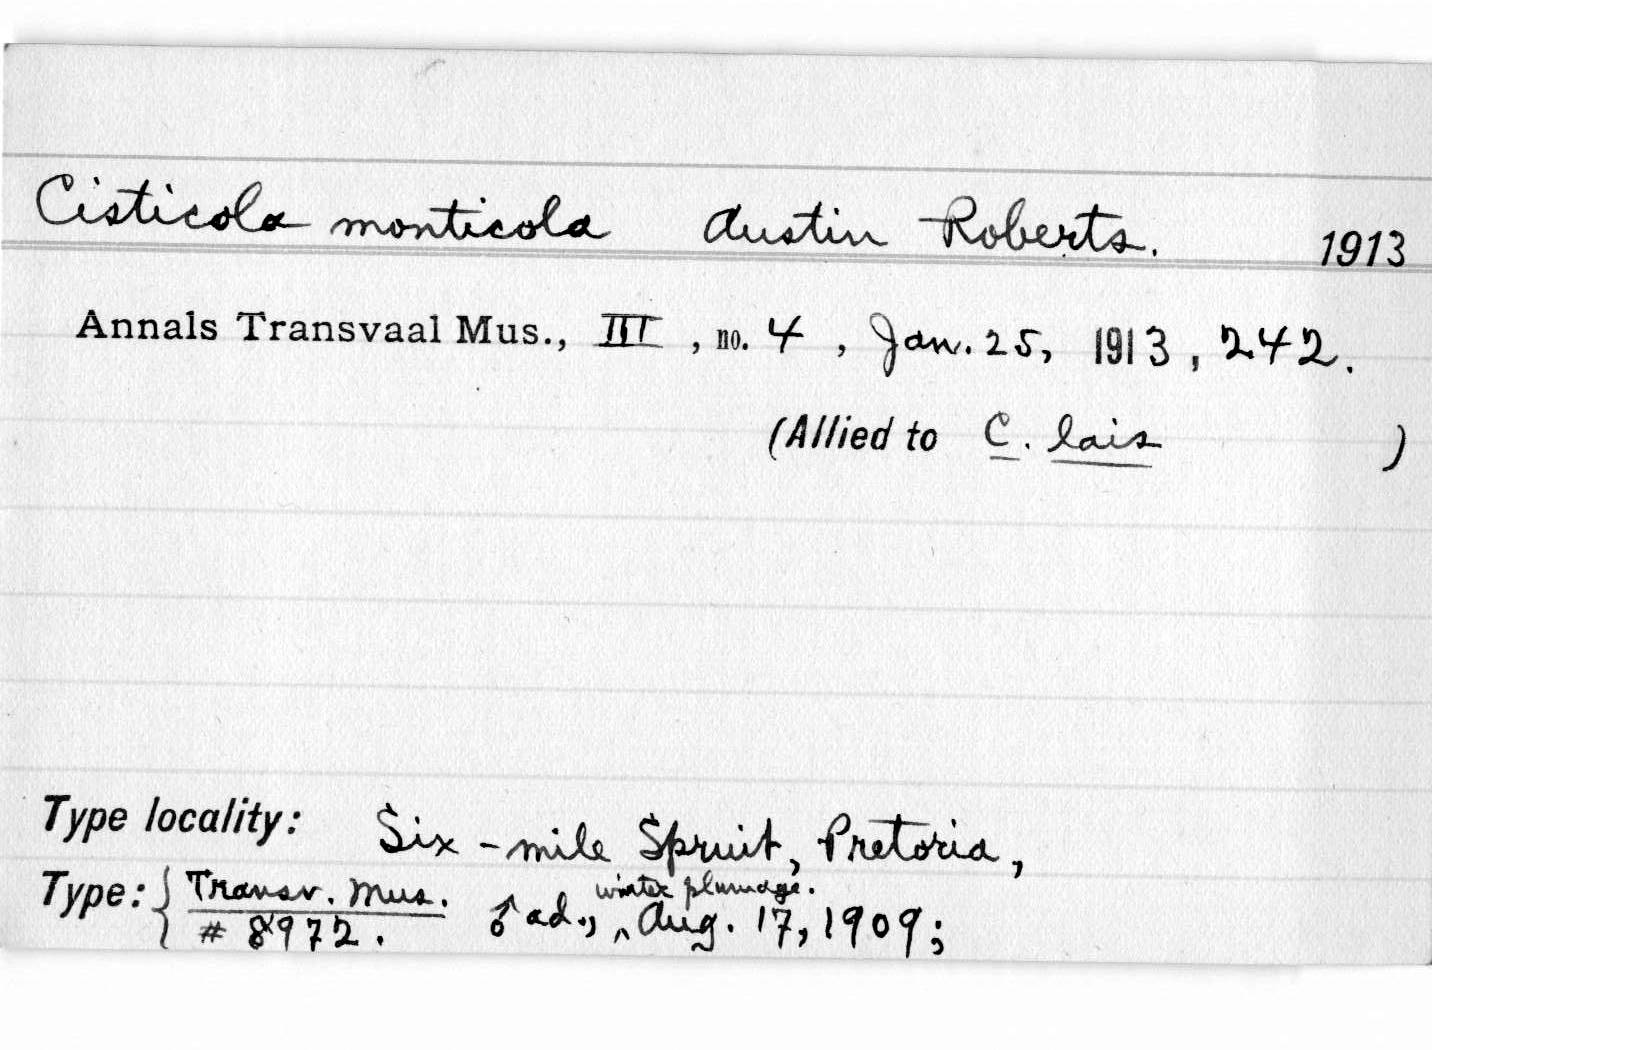 Cisticola monticola Austin Roberts. 1913
Annals Transvaal Mus., III, no. 4, Jan. 25, 1913, 242.
(Allied to C. lais )
Type locality: Six-mile Spruit, Pretoria,
Type: { Transv. Mus. # 8972. ♂ ad., ‸ winter plumage. Aug. 17, 1909;